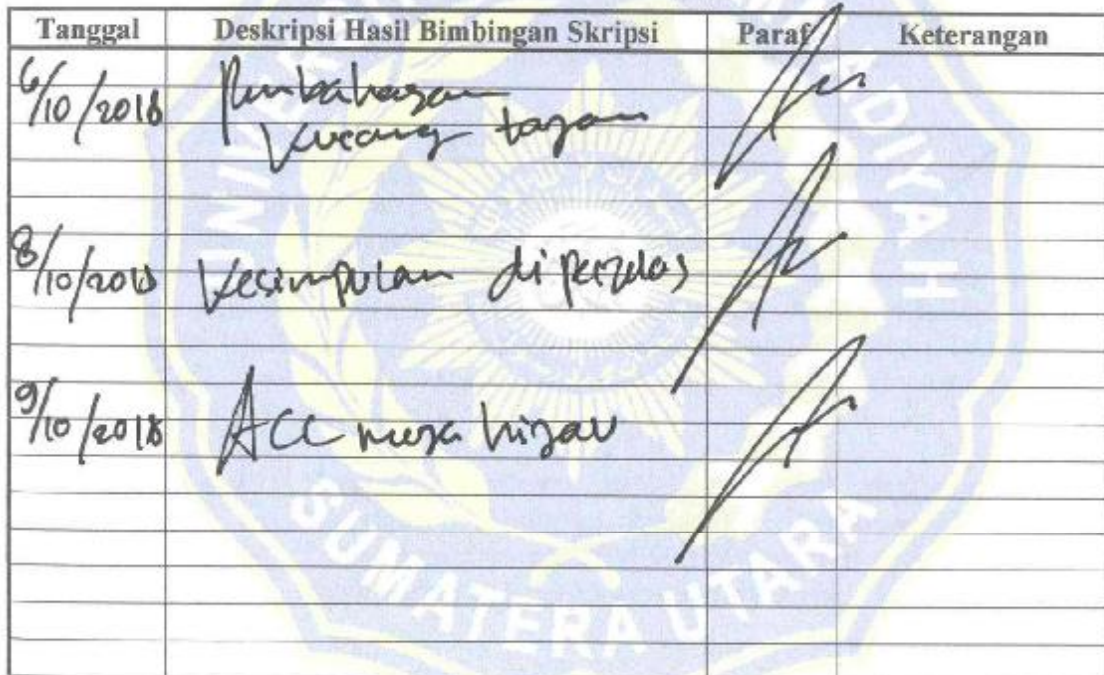 Tanggal Deskripsi Hasil Bimbingan Skripsi Paraf Keterangan
6/10/2018 Pembahasan
kurang tajam
8/10/2018 Kesimpulan diperjelas
9/10/2018 ACC meja hijau
UNIVERSITAS MUHAMMADIYAH
SUMATERA UTARA